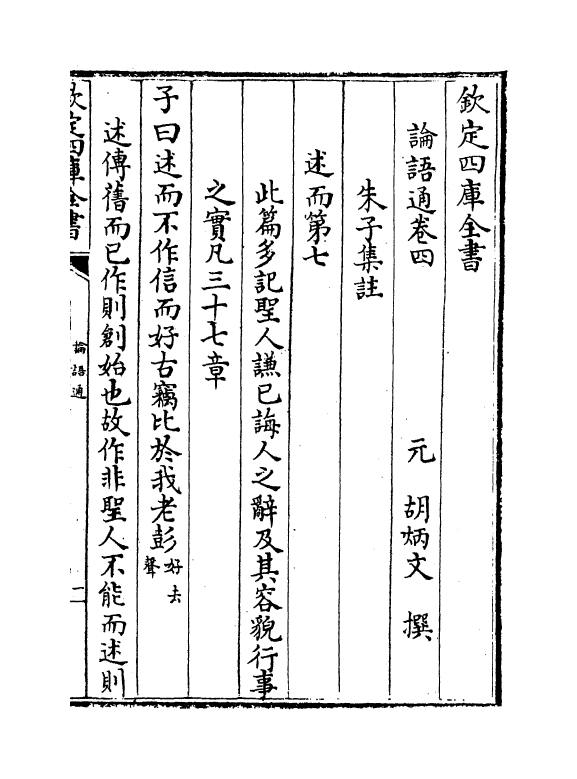 欽定四庫全書
論語通卷四
元 胡炳文 撰
朱子集註
述而第七
此篇多記聖人謙已誨人之辭及其容貌行事
之實凡三十七章
子曰述而不作信而好古竊比於我老彭好去聲
述傳舊而已作則創始也故作非聖人不能而述則
欽定四庫全書
論語通